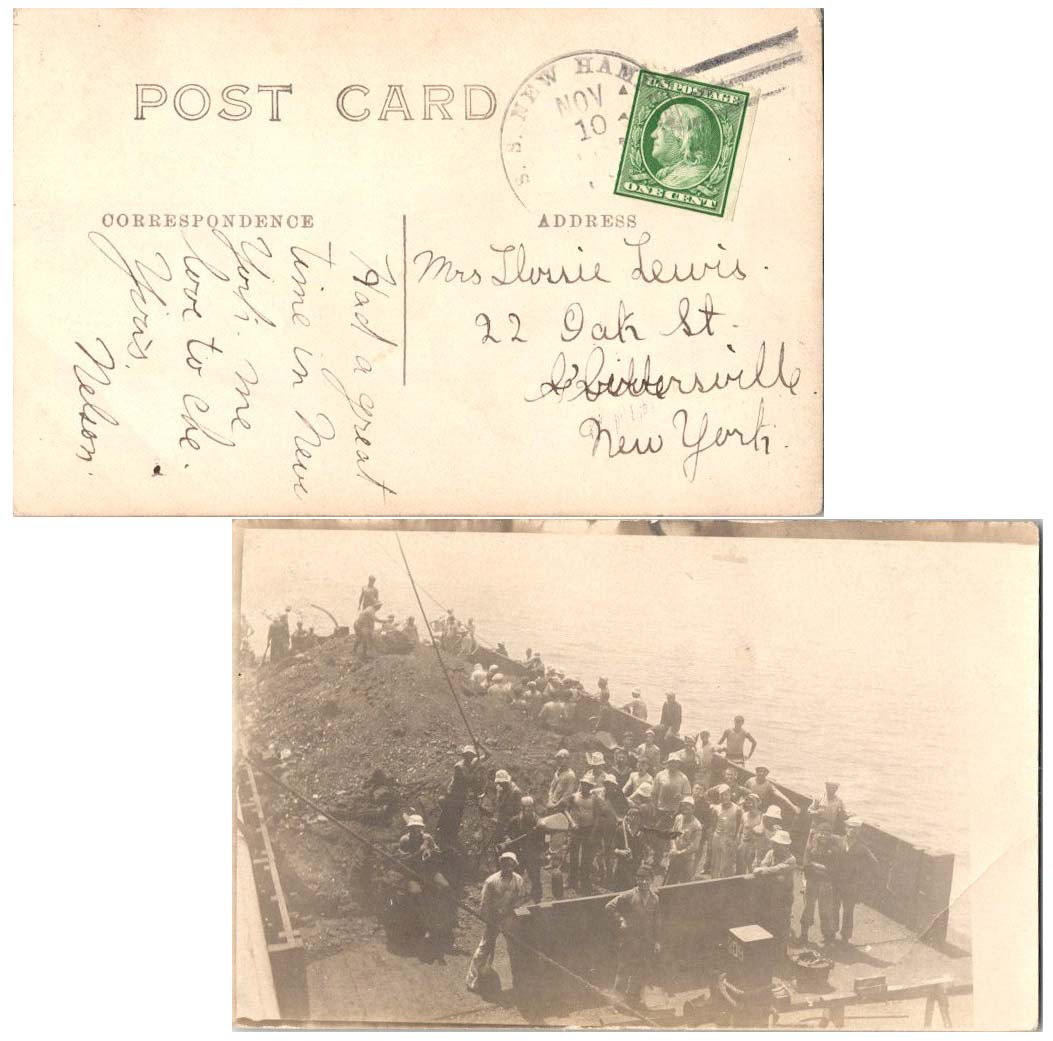 POST CARD
U.S. NEW HAM
NOV
10
U.S. POSTAGE
ONE CENT
CORRESPONDENCE
ADDRESS
Had a great
time in New
York. me
love to Che.
Yours.
Nelson.
Mrs Flossie Lewis.
22 Oak St.
New York.